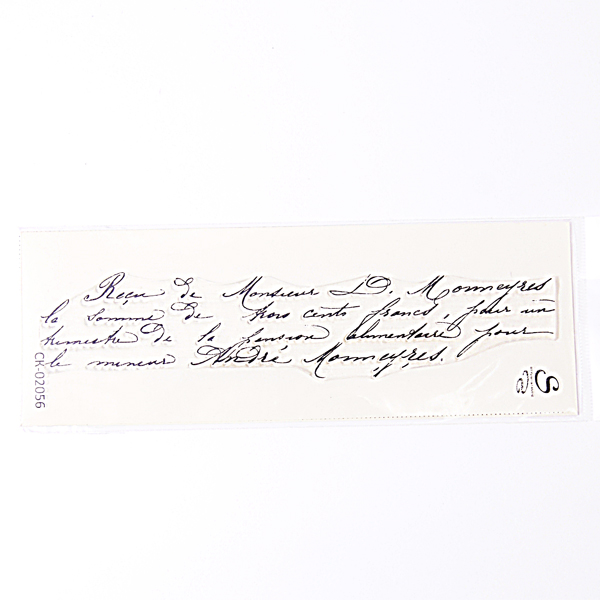 Reçu de Monsieur D. Monneyres
la somme de trois cents francs, pour un
trimestre de la pension alimentaire pour
le mineur André Monneyrés.
CK-02056